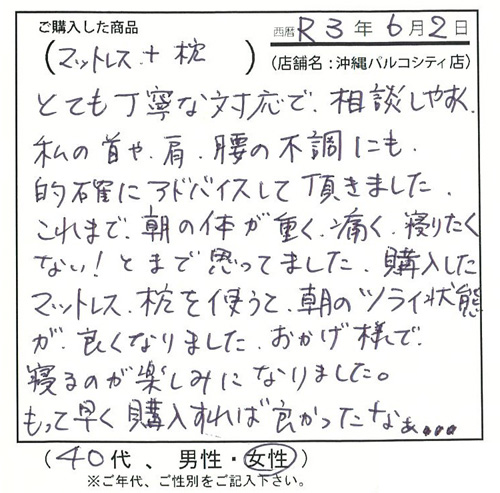 ご購入した商品
西暦 R3年6月2日
(マットレス+枕)
(店舗名:沖縄パルコシティ店)
とても丁寧な対応で、相談しやすく、
私の首や、肩、腰の不調にも、
的確にアドバイスして頂きました。
これまで、朝の体が重く、痛く、寝りたく
ない!とまで思ってました。購入した
マットレス、枕を使うと、朝のツライ状態
が、良くなりました。おかげ様で、
寝るのが楽しみになりました。
もって早く購入すれば良かったなぁ…。
(40代、男性・女性)
※ご年代、ご性別をご記入下さい。